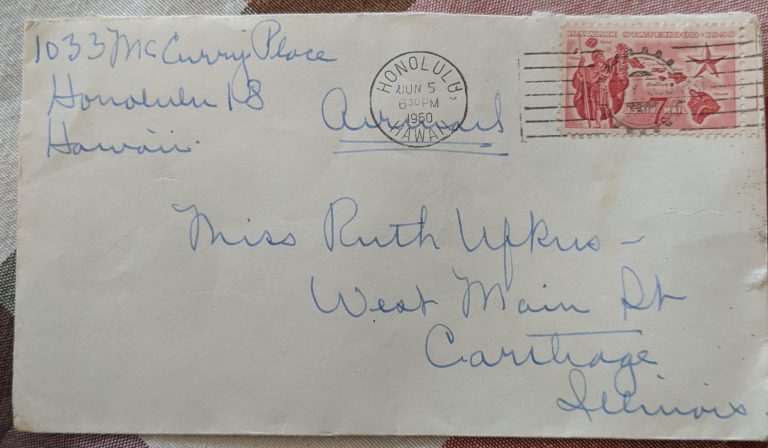 1033 McCurry Place
Honolulu 18
Hawaii.
HONOLULU,
JUN 5
6 30 PM
1960
HAWAII
Airmail
HAWAII STATEHOOD · 1959
7¢
U.S. AIR MAIL
Miss Ruth Ufkus –
West Main St
Carthage
Illinois.